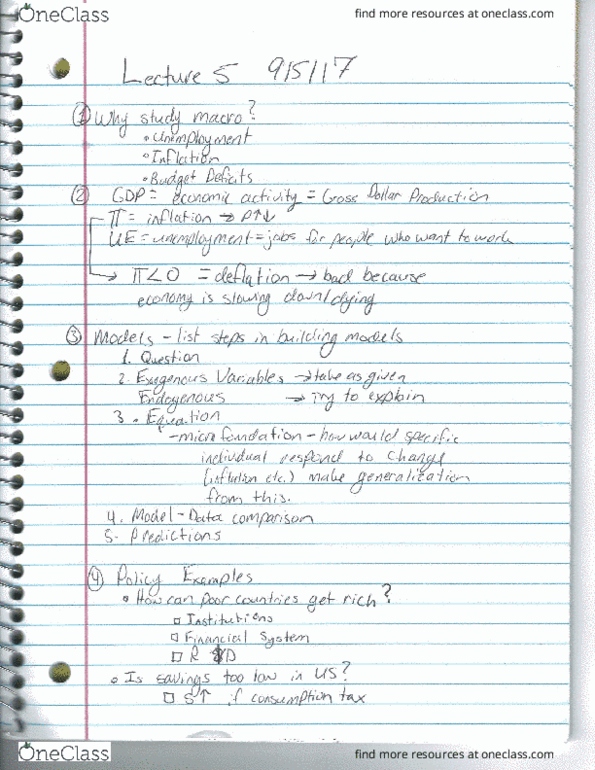 OneClass
find more resources at oneclass.com
Lecture 5 9/5/17
① Why study macro?
• Unemployment
• Inflation
• Budget Deficits
② GDP = economic activity = Gross Dollar Production
π = inflation → P↑↓
UE = unemployment = jobs for people who want to work
→ π < 0 = deflation → bad because
economy is slowing down/dying
③ Models - list steps in building models
1. Question
2. Exogenous Variables → take as given
Endogenous → try to explain
3. Equation
- microfoundation - how would specific
individual respond to change
(inflation etc.) make generalization
from this.
4. Model - Data comparison
5. Predictions
④ Policy Examples
• How can poor countries get rich?
□ Institutions
□ Financial System
□ R & D
• Is savings too low in US?
□ S↑ if consumption tax
OneClass
find more resources at oneclass.com